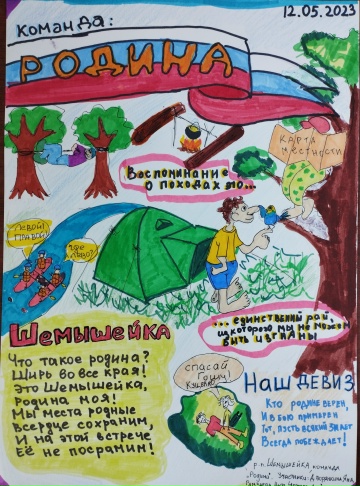 12.05.2023
Команда:
РОДИНА
КАРТА
МЕСТНОСТИ
Воспоминание
о походах это...
ЛЕВОЙ!
ПРАВОЙ!
ГДЕ
ЛЕВО?
... единственный рай,
из которого мы не можем
быть изгнаны
Шемышейка
Что такое родина?
Ширь во все края!
Это Шемышейка,
Родина моя!
Мы места родные
Всердце сохраним,
И на этой встрече
Её не посрамим!
СПАСАЙ
Гошу
Наш девиз
Кто родине верен,
И в бою примерен
Тот, пусть всякий знает
Всегда побеждает!
р.п. Шемышейка, команда